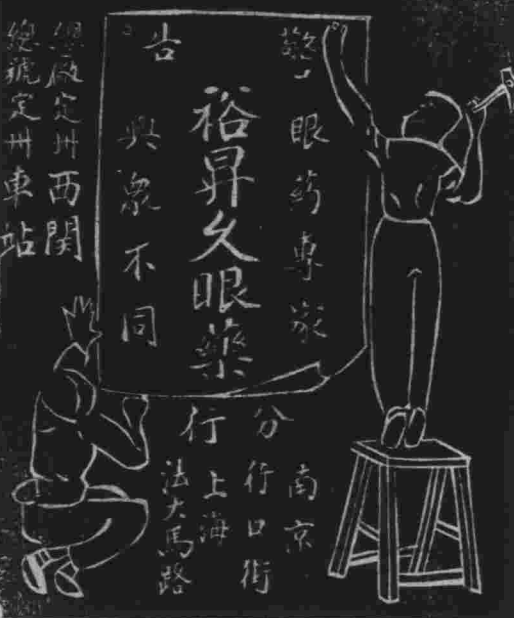 警告
眼药專家
裕昇久眼藥
與衆不同
總廠定州西関
總號定州車站
分行
南京
行口街
上海
法大馬路